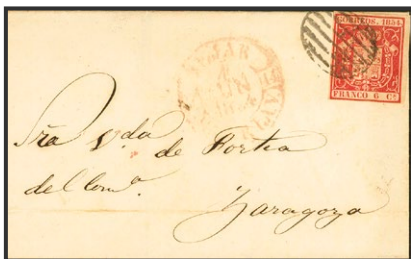 CORREOS. 1854
FRANCO 6 Cs
Sra Vda de Fortea
del Como.
Zaragoza